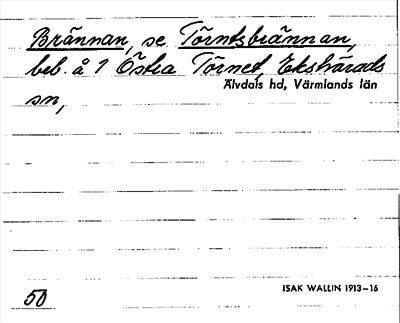 Brännan, se Törntsbrännan,
beb. å 1 Östra Törnet, Ekshärads
sn,
Älvdals hd, Värmlands län
50
ISAK WALLIN 1913–16